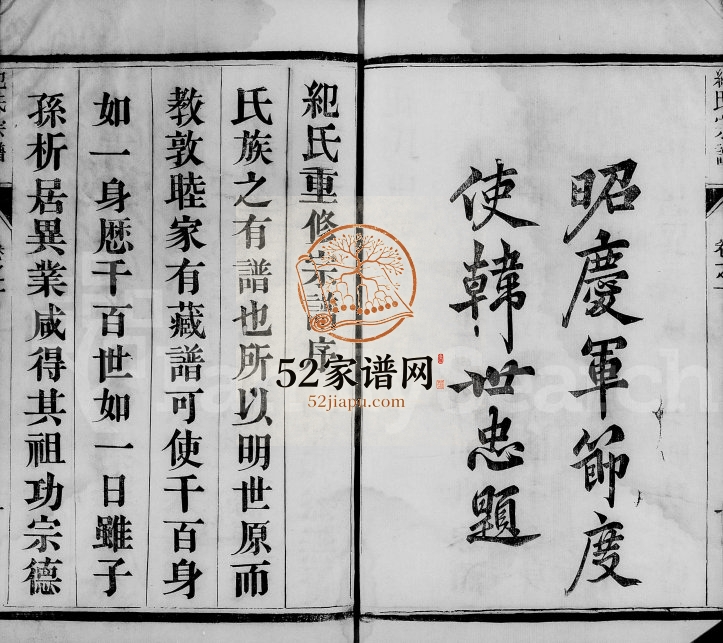 昭慶軍節度
使韓世忠題
紀氏重修宗譜序
氏族之有譜也所以明世原而
教敦睦家有藏譜可使千百身
如一身歷千百世如一日雖子
孫析居異業咸得其祖功宗德
紀氏宗譜
52家谱网
52jiapu.com